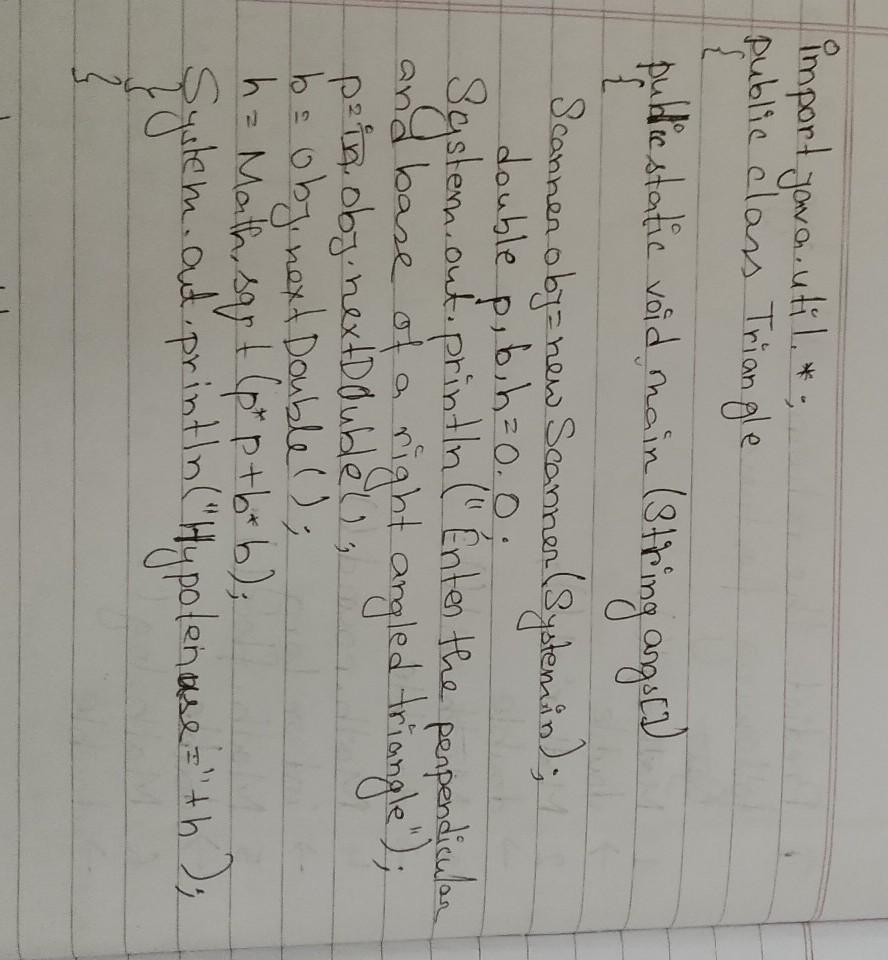 import java.util.*;
public class Triangle
{
public static void main (String args[])
{
Scanner obj=new Scanner(System.in);
double p,b,h=0.0;
System.out.println("Enter the perpendicular
and base of a right angled triangle");
p=obj.nextDouble();
b=obj.nextDouble();
h=Math.sqrt(p*p+b*b);
System.out.println("Hypotenuse="+h);
}
}